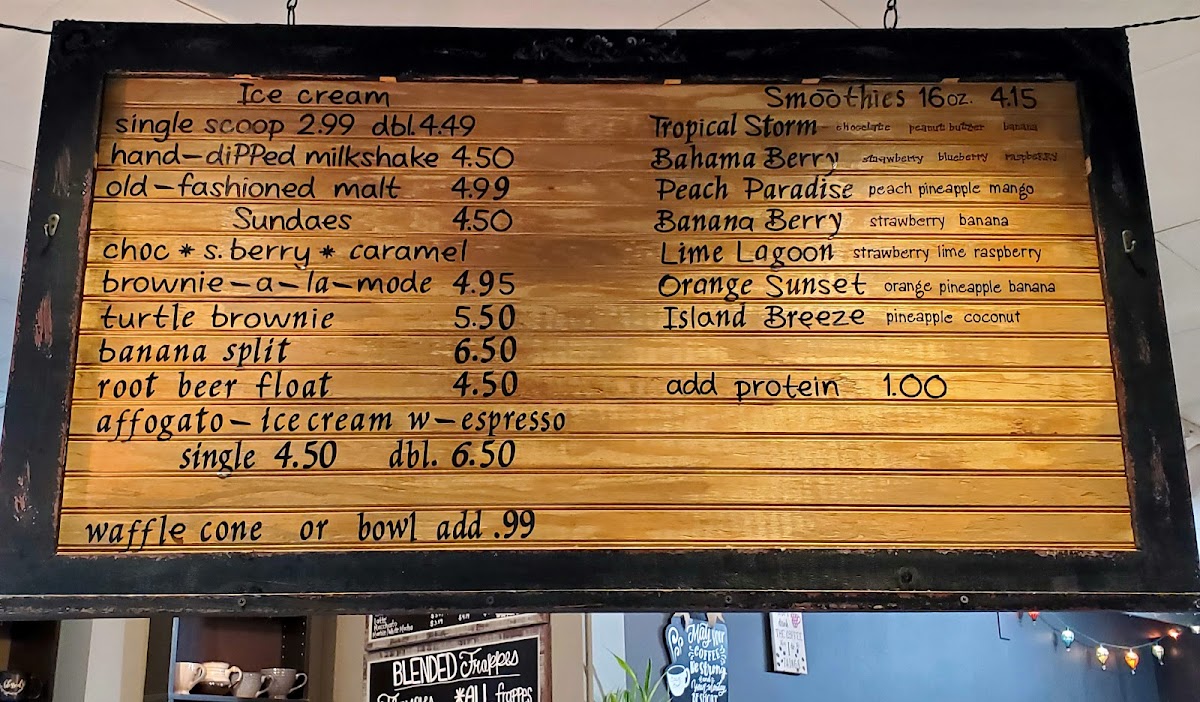 Ice cream
single scoop 2.99 dbl. 4.49
hand-dipped milkshake 4.50
old-fashioned malt 4.99
Sundaes 4.50
choc * s.berry * caramel
brownie-a-la-mode 4.95
turtle brownie 5.50
banana split 6.50
root beer float 4.50
affogato - ice cream w-espresso
single 4.50 dbl. 6.50
waffle cone or bowl add .99
Smoothies 16oz. 4.15
Tropical Storm - chocolate peanut butter banana
Bahama Berry strawberry blueberry raspberry
Peach Paradise peach pineapple mango
Banana Berry strawberry banana
Lime Lagoon strawberry lime raspberry
Orange Sunset orange pineapple banana
Island Breeze pineapple coconut
add protein 1.00
BLENDED Frappes
*ALL frappes
May your
COFFEE
Be strong